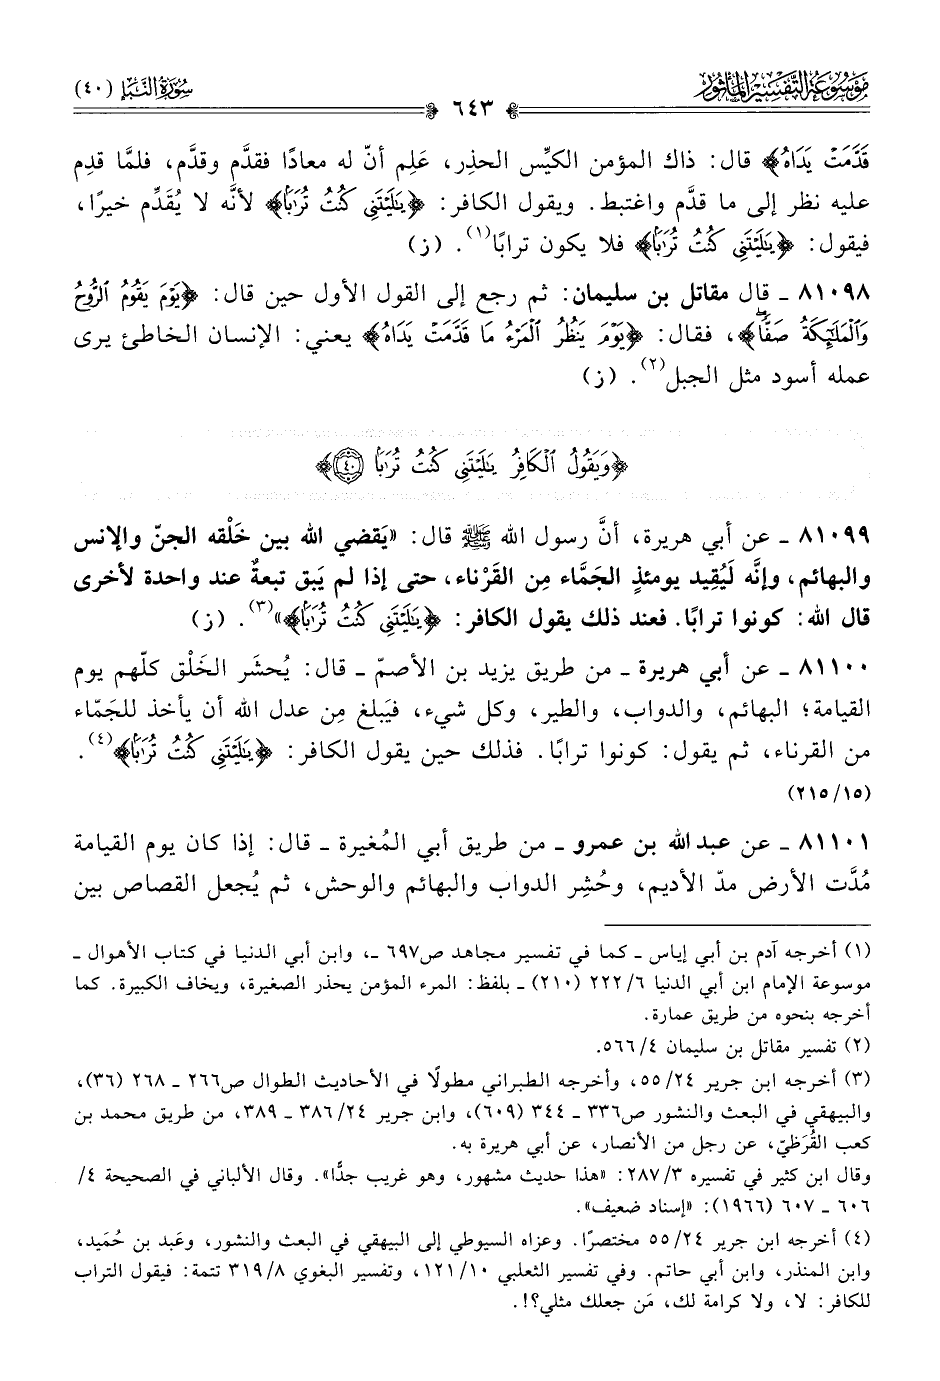 موسوعة التفسير المأثور
سورة النبإ (٤٠)
٦٤٣
قَدَّمَتْ يَدَاهُ﴾ قال: ذاك المؤمن الكيِّس الحذِر، عَلِم أنّ له معادًا فقدَّم وقدَّم، فلمَّا قدِم
عليه نظر إلى ما قدَّم واغتبط. ويقول الكافر: ﴿يَٰلَيْتَنِى كُنتُ تُرَٰبًا﴾ لأنَّه لا يُقَدِّم خيرًا،
فيقول: ﴿يَٰلَيْتَنِى كُنتُ تُرَٰبًا﴾ فلا يكون ترابًا(١). (ز)
٨١٠٩٨ ـ قال مقاتل بن سليمان: ثم رجع إلى القول الأول حين قال: ﴿يَوْمَ يَقُومُ ٱلرُّوحُ
وَٱلْمَلَٰٓئِكَةُ صَفًّا﴾، فقال: ﴿يَوْمَ يَنظُرُ ٱلْمَرْءُ مَا قَدَّمَتْ يَدَاهُ﴾ يعني: الإنسان الخاطئ يرى
عمله أسود مثل الجبل(٢). (ز)
﴿وَيَقُولُ ٱلْكَافِرُ يَٰلَيْتَنِى كُنتُ تُرَٰبًا ٤٠﴾
٨١٠٩٩ ـ عن أبي هريرة، أنَّ رسول الله ﷺ قال: «يَقضي الله بين خَلْقه الجنّ والإنس
والبهائم، وإنَّه لَيُقِيد يومئذٍ الجَمَّاء مِن القَرْناء، حتى إذا لم يَبق تبعةٌ عند واحدة لأخرى
قال الله: كونوا ترابًا. فعند ذلك يقول الكافر: ﴿يَٰلَيْتَنِى كُنتُ تُرَٰبًا﴾»(٣). (ز)
٨١١٠٠ ـ عن أبي هريرة ـ من طريق يزيد بن الأصمّ ـ قال: يُحشَر الخَلْق كلّهم يوم
القيامة؛ البهائم، والدواب، والطير، وكل شيء، فيَبلغ مِن عدل الله أن يأخذ للجَمَّاء
من القرناء، ثم يقول: كونوا ترابًا. فذلك حين يقول الكافر: ﴿يَٰلَيْتَنِى كُنتُ تُرَٰبًا﴾(٤).
(٢١٥/١٥)
٨١١٠١ ـ عن عبد الله بن عمرو ـ من طريق أبي المُغيرة ـ قال: إذا كان يوم القيامة
مُدَّت الأرض مدّ الأديم، وحُشِر الدواب والبهائم والوحش، ثم يُجعل القصاص بين
(١) أخرجه آدم بن أبي إياس ـ كما في تفسير مجاهد ص٦٩٧ ـ، وابن أبي الدنيا في كتاب الأهوال ـ
موسوعة الإمام ابن أبي الدنيا ٢٢٢/٦ (٢١٠) ـ بلفظ: المرء المؤمن يحذر الصغيرة، ويخاف الكبيرة. كما
أخرجه بنحوه من طريق عمارة.
(٢) تفسير مقاتل بن سليمان ٥٦٦/٤.
(٣) أخرجه ابن جرير ٥٥/٢٤، وأخرجه الطبراني مطولًا في الأحاديث الطوال ص٢٦٦ ـ ٢٦٨ (٣٦)،
والبيهقي في البعث والنشور ص٣٣٦ ـ ٣٤٤ (٦٠٩)، وابن جرير ٣٨٦/٢٤ ـ ٣٨٩، من طريق محمد بن
كعب القُرَظيّ، عن رجل من الأنصار، عن أبي هريرة به.
وقال ابن كثير في تفسيره ٢٨٧/٣: «هذا حديث مشهور، وهو غريب جدًّا». وقال الألباني في الصحيحة ٤/
٦٠٦ ـ ٦٠٧ (١٩٦٦): «إسناد ضعيف».
(٤) أخرجه ابن جرير ٥٥/٢٤ مختصرًا. وعزاه السيوطي إلى البيهقي في البعث والنشور، وعَبد بن حُمَيد،
وابن المنذر، وابن أبي حاتم. وفي تفسير الثعلبي ١٢١/١٠، وتفسير البغوي ٣١٩/٨ تتمة: فيقول التراب
للكافر: لا، ولا كرامة لك، مَن جعلك مثلي؟!.